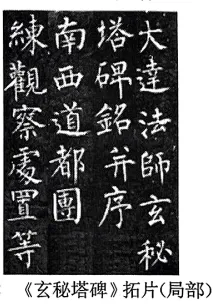 大達法師玄秘
塔碑銘并序
南西道都團
練觀察處置等
《玄秘塔碑》拓片(局部)